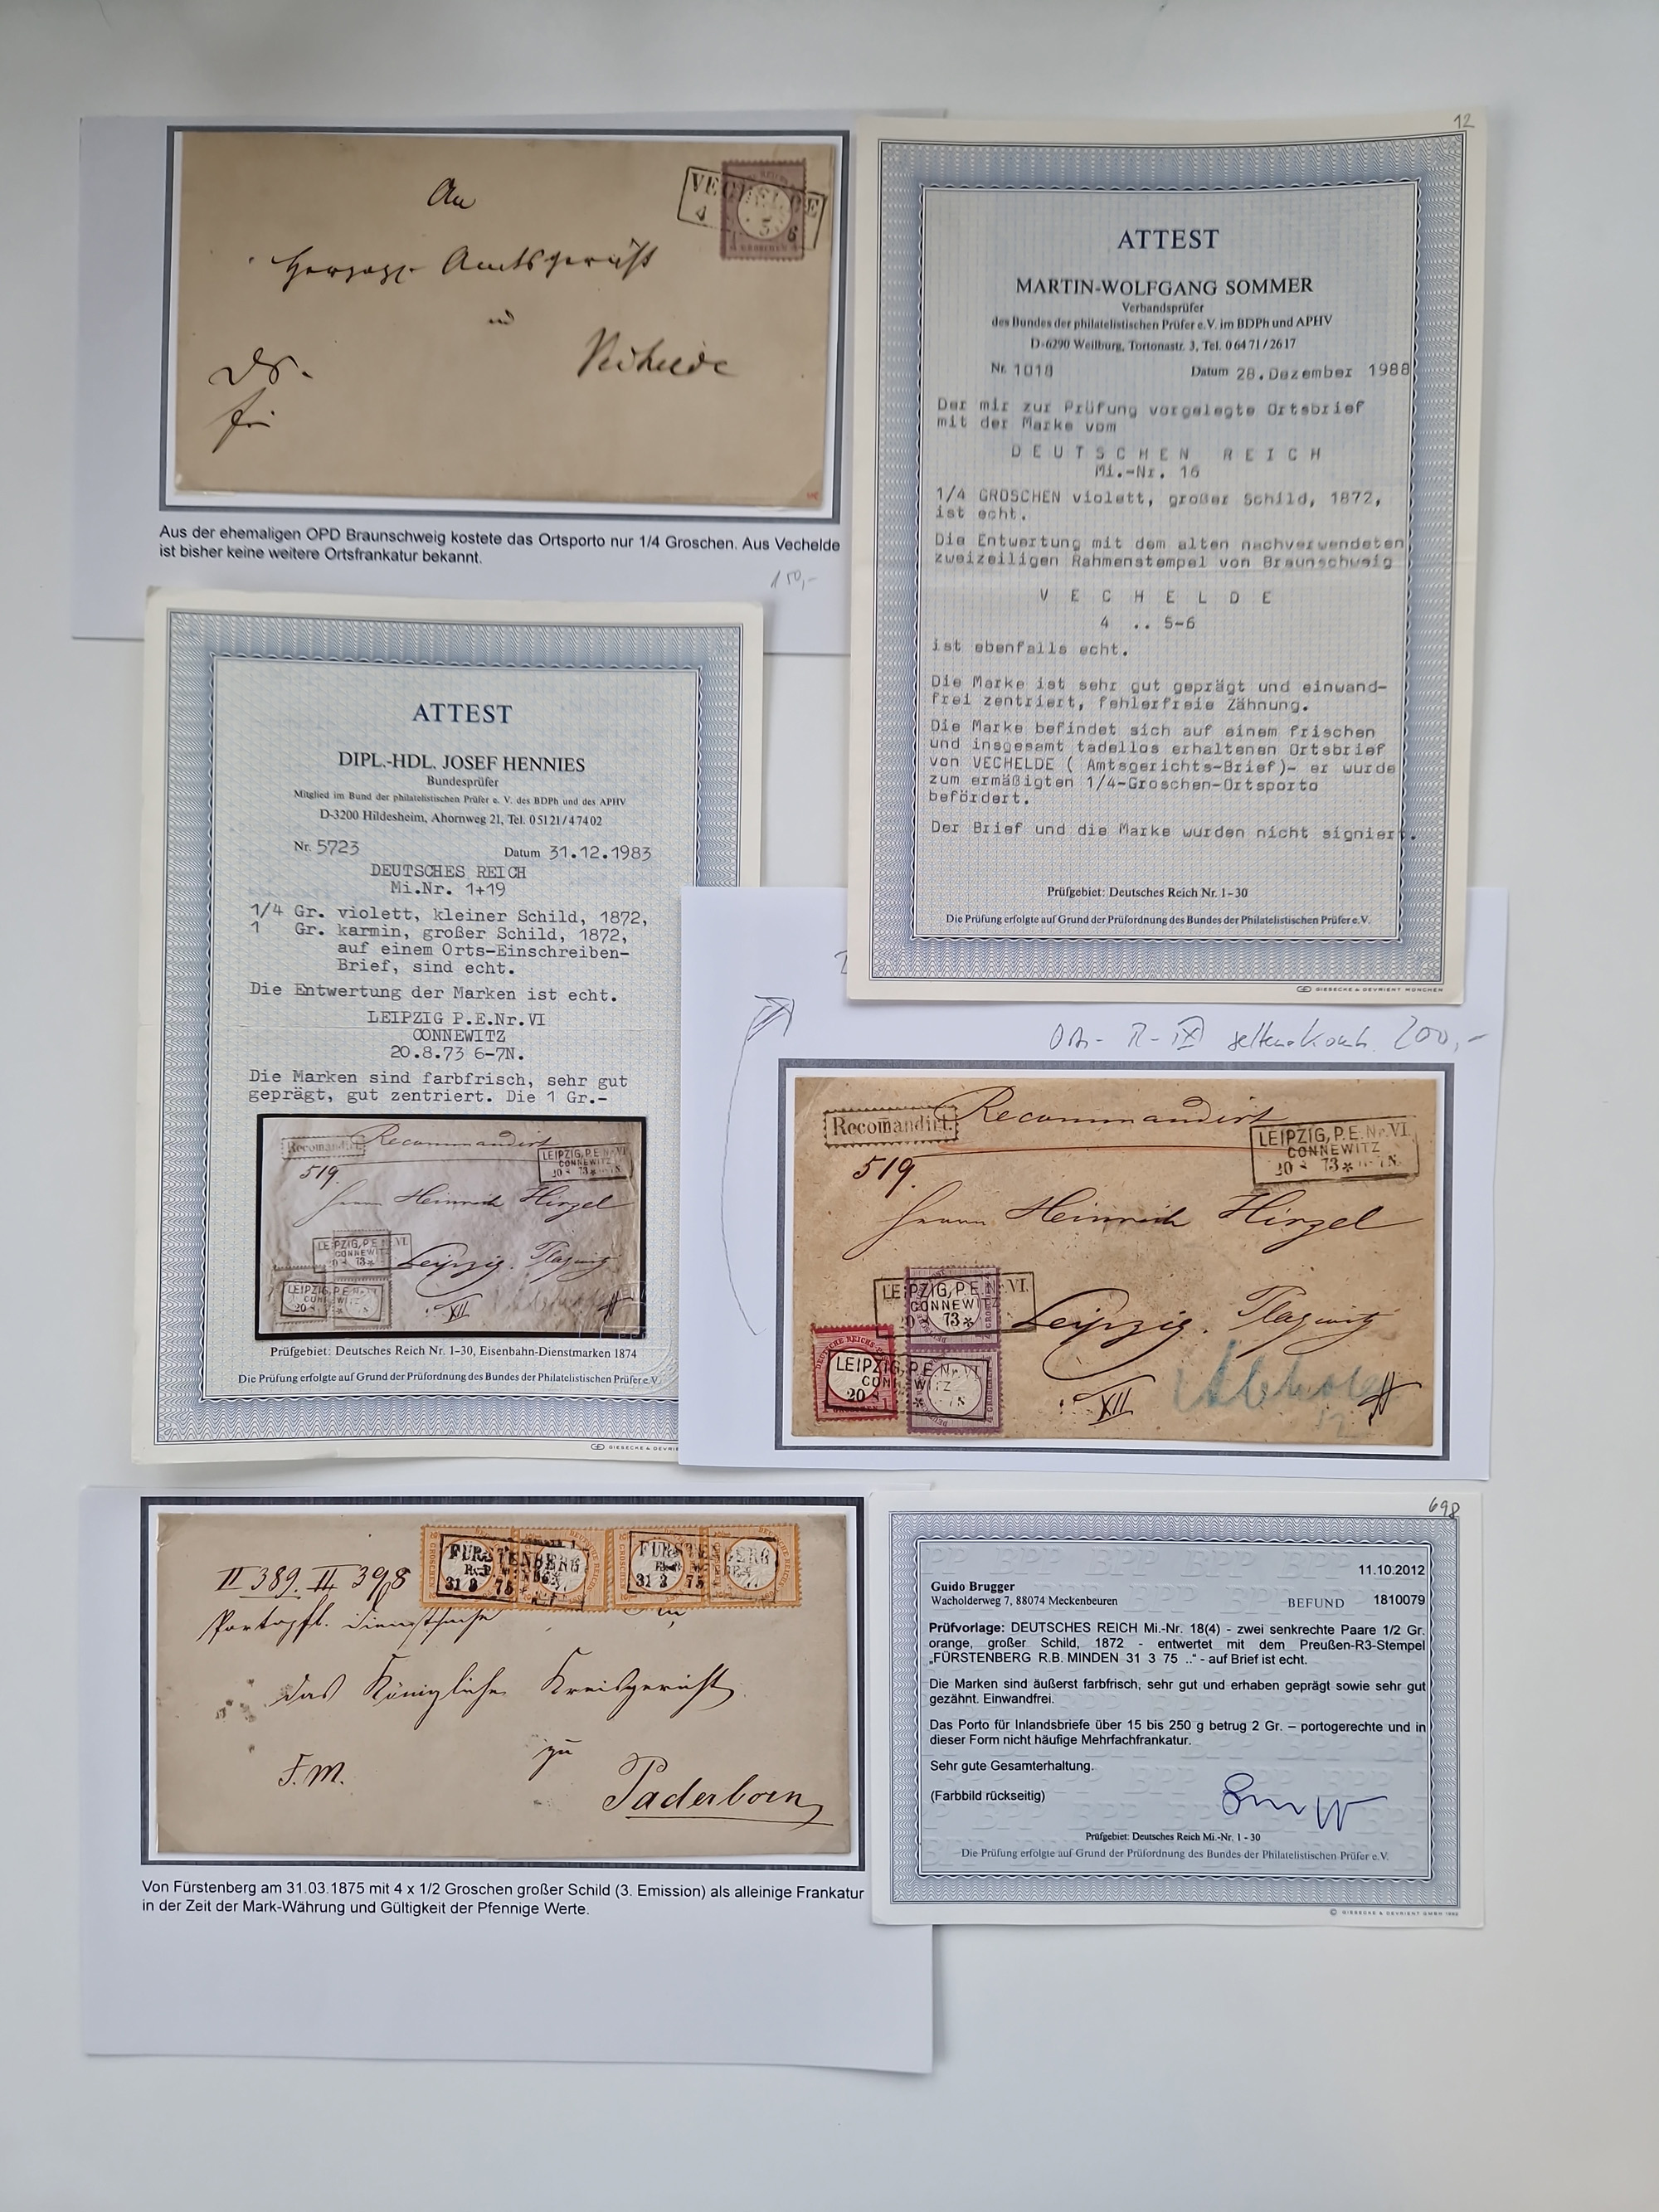 An
VECHELDE
4 5 6
Herzogl. Amtsgericht
in
Vechelde
Ds.
Aus der ehemaligen OPD Braunschweig kostete das Ortsporto nur 1/4 Groschen. Aus Vechelde
ist bisher keine weitere Ortsfrankatur bekannt.
150,-
12
ATTEST
MARTIN-WOLFGANG SOMMER
Verbandsprüfer
des Bundes der philatelistischen Prüfer e.V. im BDPh und APHV
D-6290 Weilburg, Tortonastr. 3, Tel. 0 64 71 / 26 17
Nr. 1018 Datum 28.Dezember 1988
Der mir zur Prüfung vorgelegte Ortsbrief
mit der Marke vom
D E U T S C H E N R E I C H
Mi.-Nr. 16
1/4 GROSCHEN violett, großer Schild, 1872,
ist echt.
Die Entwertung mit dem alten nachverwendeten
zweizeiligen Rahmenstempel von Braunschweig
V E C H E L D E
4 .. 5-6
ist ebenfalls echt.
Die Marke ist sehr gut geprägt und einwand-
frei zentriert, fehlerfreie Zähnung.
Die Marke befindet sich auf einem frischen
und insgesamt tadellos erhaltenen Ortsbrief
von VECHELDE ( Amtsgerichts-Brief)- er wurde
zum ermäßigten 1/4-Groschen-Ortsporto
befördert.
Der Brief und die Marke wurden nicht signiert.
Prüfgebiet: Deutsches Reich Nr. 1-30
Die Prüfung erfolgte auf Grund der Prüfordnung des Bundes der Philatelistischen Prüfer e.V.
GIESECKE & DEVRIENT MÜNCHEN
ATTEST
DIPL.-HDL. JOSEF HENNIES
Bundesprüfer
Mitglied im Bund der philatelistischen Prüfer e. V. des BDPh und des APHV
D-3200 Hildesheim, Ahornweg 21, Tel. 0 51 21 / 4 74 02
Nr. 5723 Datum 31.12.1983
DEUTSCHES REICH
Mi.Nr. 1+19
1/4 Gr. violett, kleiner Schild, 1872,
1 Gr. karmin, großer Schild, 1872,
auf einem Orts-Einschreiben-
Brief, sind echt.
Die Entwertung der Marken ist echt.
LEIPZIG P.E.Nr.VI
CONNEWITZ
20.8.73 6-7N.
Die Marken sind farbfrisch, sehr gut
geprägt, gut zentriert. Die 1 Gr.-
Recomandirt. Recommandirt
LEIPZIG, P.E.Nr.VI.
CONNEWITZ
20 8 73 *
519.
Herrn Heinrich Hirzel
LEIPZIG, P.E.Nr.VI.
CONNEWITZ
73 *
Leipzig. Plagwitz
LEIPZIG, P.E.Nr.VI.
20
XII
Prüfgebiet: Deutsches Reich Nr. 1-30, Eisenbahn-Dienstmarken 1874
Die Prüfung erfolgte auf Grund der Prüfordnung des Bundes der Philatelistischen Prüfer e.V.
GIESECKE & DEVRIE
Ort- R- seltene Komb. 200,-
Recomandirt. Recommandirt
LEIPZIG, P.E.Nr.VI.
CONNEWITZ
20 8 73 *
519.
Herrn Heinrich Hirzel
LEIPZIG, P.E.Nr.VI.
CONNEWITZ
73 *
Leipzig. Plagwitz
LEIPZIG, P.E.Nr.VI.
CONNEWITZ
20 8 *
XII
II 389. II 398
FÜRSTENBERG
31 3 75 *
FÜRSTENBERG
31 3 75 *
Portopfl. Dienstsache
das Königliche Kreisgericht
zu
F.M.
Paderborn
Von Fürstenberg am 31.03.1875 mit 4 x 1/2 Groschen großer Schild (3. Emission) als alleinige Frankatur
in der Zeit der Mark-Währung und Gültigkeit der Pfennige Werte.
698
11.10.2012
Guido Brugger
Wacholderweg 7, 88074 Meckenbeuren BEFUND 1810079
Prüfvorlage: DEUTSCHES REICH Mi.-Nr. 18(4) - zwei senkrechte Paare 1/2 Gr.
orange, großer Schild, 1872 - entwertet mit dem Preußen-R3-Stempel
„FÜRSTENBERG R.B. MINDEN 31 3 75 ..“ - auf Brief ist echt.
Die Marken sind äußerst farbfrisch, sehr gut und erhaben geprägt sowie sehr gut
gezähnt. Einwandfrei.
Das Porto für Inlandsbriefe über 15 bis 250 g betrug 2 Gr. – portogerechte und in
dieser Form nicht häufige Mehrfachfrankatur.
Sehr gute Gesamterhaltung.
(Farbbild rückseitig)
Prüfgebiet: Deutsches Reich Mi.-Nr. 1 - 30
Die Prüfung erfolgte auf Grund der Prüfordnung des Bundes der Philatelistischen Prüfer e.V.
© GIESECKE & DEVRIENT GMBH 1992